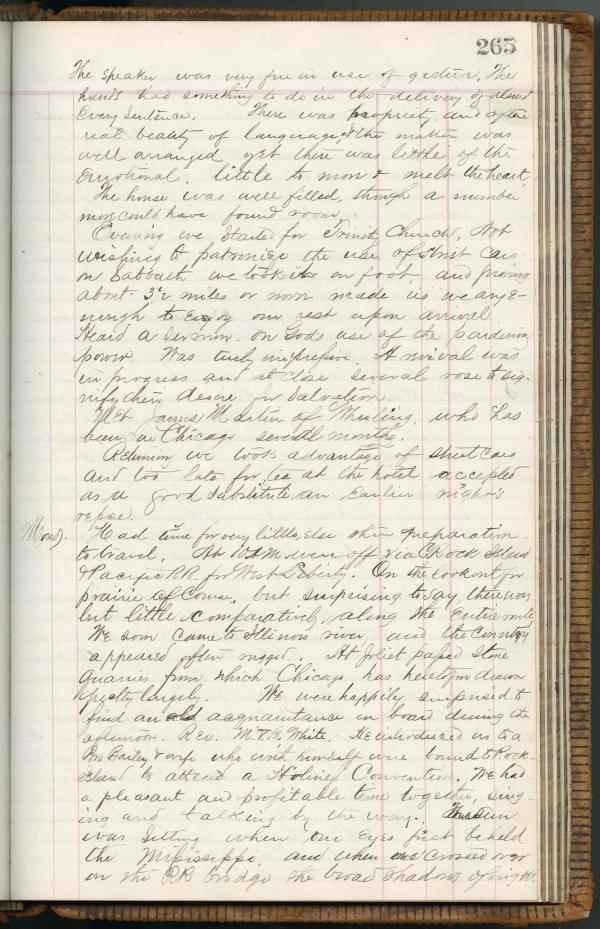 265
The speaker was very free in use of gesture. The
hands had something to do in the delivery of almost
every sentence. There was propriety and often
real beauty of language, & the matter was
well arranged, yet there was little of the
emotional, little to move & melt the heart.
The house was well filled, though a number
more could have found room.
Evening we started for Trinity Church. Not
wishing to patronize the use of street cars
on Sabbath we took it on foot, and
about 3½ miles or more made us weary e-
nough to enjoy our rest upon arrival.
Heard a sermon on God's use of the pardoning
power. Was truly impressive. A revival was
in progress and at close several rose to sig-
nify their desire for salvation.
Met James Martin of Wheeling, who has
been in Chicago several months.
Returning we took advantage of street cars
and too late for tea at the hotel accepted
as a good substitute an earlier night's
repose.
Mond. Had time for very little else than preparation
to travel. At 10 A.M. were off via C Rock Island
& Pacific RR. for West Liberty. On the lookout for
prairie of course, but surprising to say, there was
but little comparatively, along the entire route.
We soon came to Illinois river, and the country
appeared often rugged. At Joliet passed stone
quarries from which Chicago has heretofore drawn
pretty largely. We were happily surprised to
find an old acquaintance on board during the
afternoon. Rev. White. He introduced us to a
Bro Bailey & wife who with himself were bound to Rock
Island to attend a Holiness Convention. We had
a pleasant and profitable time together, sing-
ing and talking by the way. The sun
was setting when our eyes first beheld
the Mississippi, and when we crossed over
on the RR bridge the broad shadows of night